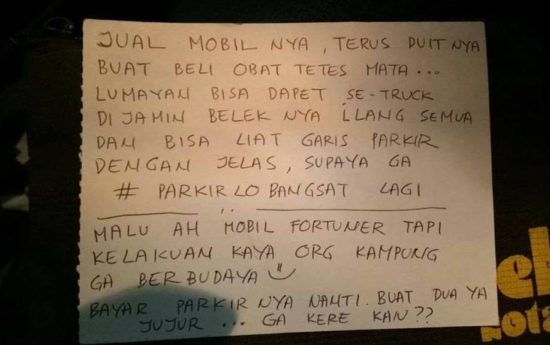 JUAL MOBIL NYA, TERUS DUIT NYA
BUAT BELI OBAT TETES MATA...
LUMAYAN BISA DAPET SE-TRUCK
DIJAMIN BELEK NYA ILANG SEMUA
DAN BISA LIAT GARIS PARKIR
DENGAN JELAS, SUPAYA GA
# PARKIR LO BANGSAT LAGI
MALU AH MOBIL FORTUNER TAPI
KELAKUAN KAYA ORG KAMPUNG
GA BERBUDAYA
BAYAR PARKIR NYA NANTI. BUAT DUA YA
JUJUR ... GA KERE KAN??